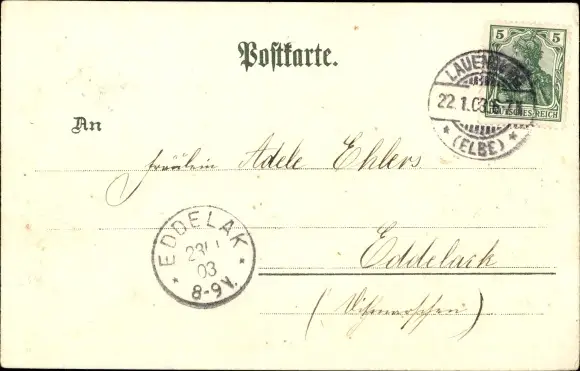 Postkarte.
5 5
DEUTSCHES REICH
LAUENBURG
22.1.03
(ELBE)
An
Fräulein Adele Ehlers
EDDELAK
23/1
03
8-9V.
Eddelack
(Dithmarschen)